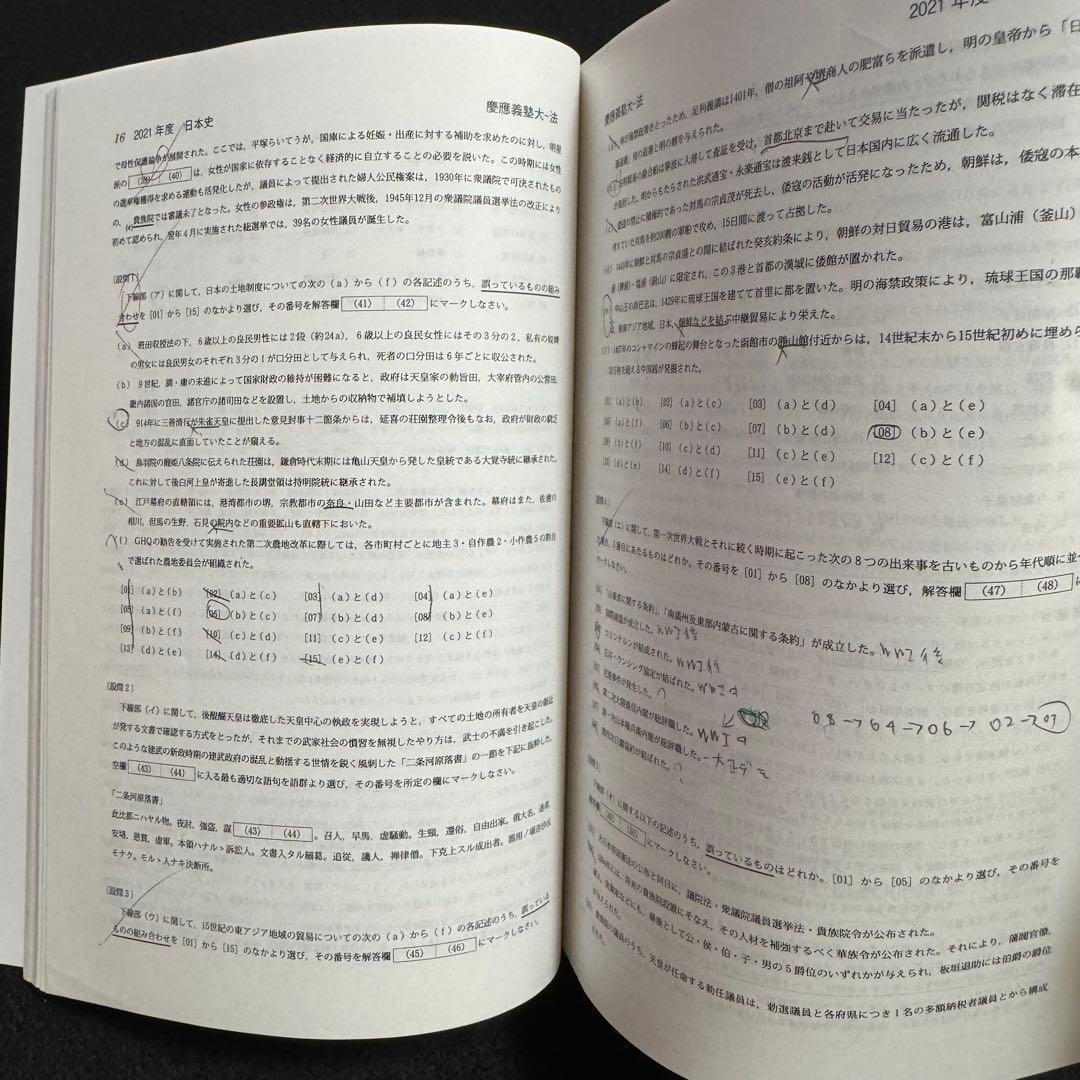 16 2021年度 日本史
慶應義塾大-法
で母性保護論争が展開された。ここでは，平塚らいてうが，国庫による妊娠・出産に対する補助を求めたのに対し，明星
派の (39) (40) は，女性が国家に依存することなく経済的に自立することの必要を説いた。この時期には女性
の選挙権獲得を求める運動も活発化したが，議員によって提出された婦人公民権案は，1930年に衆議院で可決されたもの
の，貴族院では審議未了となった。女性の参政権は，第二次世界大戦後，1945年12月の衆議院議員選挙法の改正により
初めて認められ，翌年4月に実施された総選挙では，39名の女性議員が誕生した。
〔設問1〕
下線部（ア）に関して，日本の土地制度についての次の（a）から（f）の各記述のうち，誤っているものの組み
合わせを[01]から[15]のなかより選び，その番号を解答欄 (41) (42) にマークしなさい。
(a) 班田収授法の下，6歳以上の良民男性には2段（約24a），6歳以上の良民女性にはその3分の2，私有の奴婢
の男女には良民男女のそれぞれ3分の1が口分田として与えられ，死者の口分田は6年ごとに収公された。
(b) 9世紀，調・庸の未進によって国家財政の維持が困難になると，政府は天皇家の勅旨田，大宰府管内の公営田，
畿内諸国の官田，諸官庁の諸司田などを設置し，土地からの収納物で補填しようとした。
(c) 914年に三善清行が朱雀天皇に提出した意見封事十二箇条からは，延喜の荘園整理令後もなお，政府が財政の窮乏
と地方の混乱に直面していたことが窺える。
(d) 鳥羽院の寵姫八条院に伝えられた荘園は，鎌倉時代末期には亀山天皇から発した皇統である大覚寺統に継承された。
これに対して後白河上皇が寄進した長講堂領は持明院統に継承された。
(e) 江戸幕府の直轄領には，港湾都市の堺，宗教都市の奈良・山田など主要都市が含まれた。幕府はまた，佐渡の
相川，但馬の生野，石見の院内などの重要鉱山も直轄下においた。
(f) GHQの勧告を受けて実施された第二次農地改革に際しては，各市町村ごとに地主3・自作農2・小作農5の割合
で選ばれた農地委員会が組織された。
[01] (a)と(b) [02] (a)と(c) [03] (a)と(d) [04] (a)と(e)
[05] (a)と(f) [06] (b)と(c) [07] (b)と(d) [08] (b)と(e)
[09] (b)と(f) [10] (c)と(d) [11] (c)と(e) [12] (c)と(f)
[13] (d)と(e) [14] (d)と(f) [15] (e)と(f)
〔設問2〕
下線部（イ）に関して，後醍醐天皇は徹底した天皇中心の執政を実現しようと，すべての土地の所有者を天皇の側近
が発する文書で確認する方式をとったが，それまでの武家社会の慣習を無視したやり方は，武士の不満を引き起こした。
このような建武の新政時期の建武政府の混乱と動揺する世情を鋭く風刺した「二条河原落書」の一節を下記に抜粋した。
空欄 (43) (44) に入る最も適切な語句を語群より選び，その番号を所定の欄にマークしなさい。
「二条河原落書」
此比都ニハヤル物。夜討，強盗，謀 (43) (44) 。召人，早馬，虚騒動。生頸，還俗，自由出家。俄大名，迷者，
安堵，恩賞，虚軍。本領ハナルヽ訴訟人。文書入タル細葛。追従，讒人，禅律僧。下克上スル成出者。器用ノ堪否沙汰
モナク。モルヽ人ナキ決断所。
〔設問3〕
下線部（ウ）に関して，15世紀の東アジア地域の貿易についての次の（a）から（f）の各記述のうち，誤っている
ものの組み合わせを[01]から[15]のなかより選び，その番号を解答欄 (45) (46) にマークしなさい。
2021年度
慶應義塾大-法
海禁政策をとったため，足利義満は1401年，僧の祖阿や堺商人の肥富らを派遣し，明の皇帝から「日
の返書と明の暦を与えられた。
は寧波に入港して査証を受け，首都北京まで赴いて交易に当たったが，関税はなく滞在
明からもたらされた洪武通宝・永楽通宝は渡来銭として日本国内に広く流通した。
(c) 倭寇の禁止に積極的であった対馬の宗貞茂が死去し，倭寇の活動が活発になったため，朝鮮は，倭寇の本
考えていた対馬を約200艘の軍船で攻め，15日間に渡って占拠した。
(d) 1443年に朝鮮と対馬の宗貞盛との間に結ばれた癸亥約条により，朝鮮の対日貿易の港は，富山浦（釜山）
浦（薺浦）・塩浦（蔚山）に限定され，この3港と首都の漢城に倭館が置かれた。
(e) 中山王の尚巴志は，1429年に琉球王国を建てて首里に都を置いた。明の海禁政策により，琉球王国の那覇
東南アジア地域，日本，朝鮮などを結ぶ中継貿易により栄えた。
(f) 1457年のコシャマインの蜂起の舞台となった函館市の勝山館付近からは，14世紀末から15世紀初めに埋めら
万枚を超える中国銭が発掘された。
[01] (a)と(b) [02] (a)と(c) [03] (a)と(d) [04] (a)と(e)
[05] (a)と(f) [06] (b)と(c) [07] (b)と(d) [08] (b)と(e)
[09] (b)と(f) [10] (c)と(d) [11] (c)と(e) [12] (c)と(f)
[13] (d)と(e) [14] (d)と(f) [15] (e)と(f)
〔設問4〕
下線部（エ）に関して，第一次世界大戦とそれに続く時期に起こった次の8つの出来事を古いものから年代順に並べ
番目にあたるものはどれか。その番号を[01]から[08]のなかより選び，解答欄 (47) (48) に
マークしなさい。
[01] 「山東省に関する条約」，「南満州及東部内蒙古に関する条約」が成立した。
[02] 国際連盟が成立した。
[03] コミンテルンが結成された。
[04] 石井・ランシング協定が結ばれた。
[05] 尼港事件が発生した。
[06] 第二次大隈重信内閣が総辞職した。
[07] 第一次山本権兵衛内閣が総辞職した。
[08] 第四次日露協約が結ばれた。
08→04→06→02→07
〔設問5〕
下線部（オ）に関する以下の記述のうち，誤っているものはどれか。[01]から[05]のなかより選び，その番号を
解答欄 (49) (50) にマークしなさい。
大日本帝国憲法の公布と同日に，議院法・衆議院議員選挙法・貴族院令が公布された。
1884年には，将来の貴族院設置にそなえ，その人材を補強するべく華族令が公布された。それにより，藩閥官僚，
などにも，華族として公・侯・伯・子・男の5爵位のいずれかが与えられ，板垣退助には伯爵の爵位
が与えられた。
貴族院の議員のうち，天皇が任命する勅任議員は，勅選議員と各府県につき1名の多額納税者議員とから構成
された。